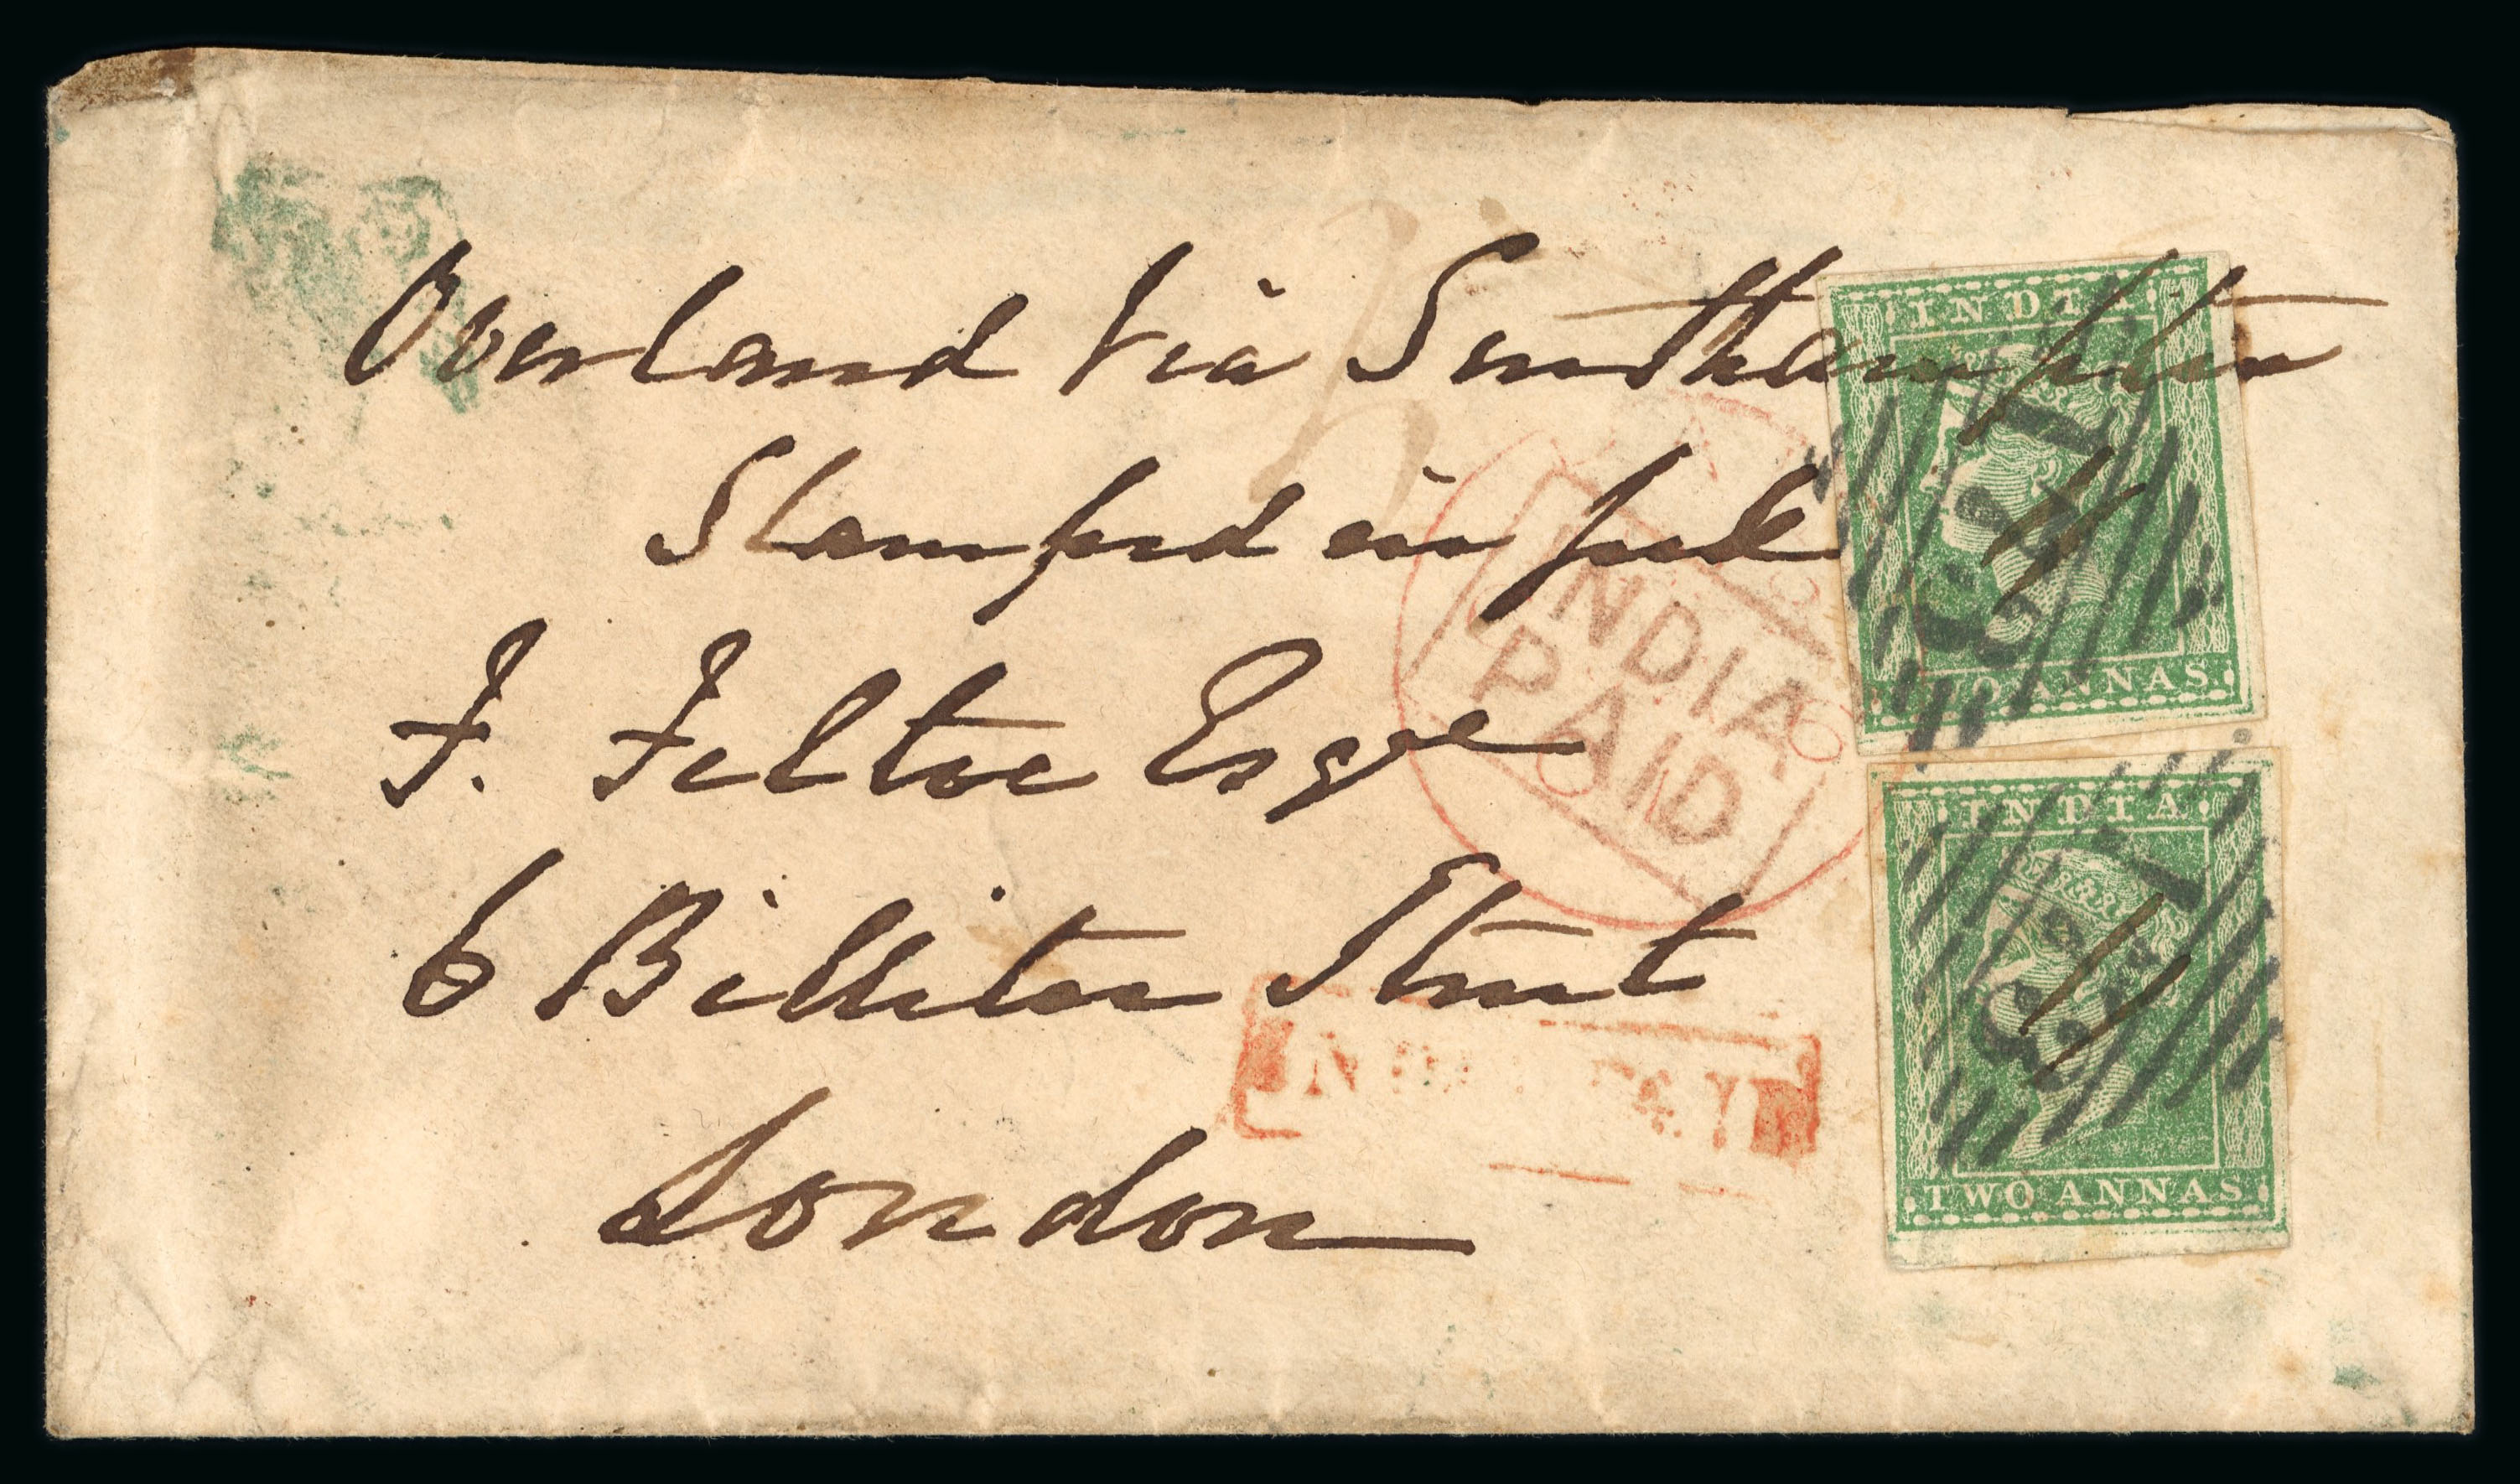 Overland Viâ Southampton
Stamped in full
F. Feltoe Esqre
6 Billiter Street
London
INDIA
PAID
INDIA
TWO ANNAS.
INDIA
TWO ANNAS.